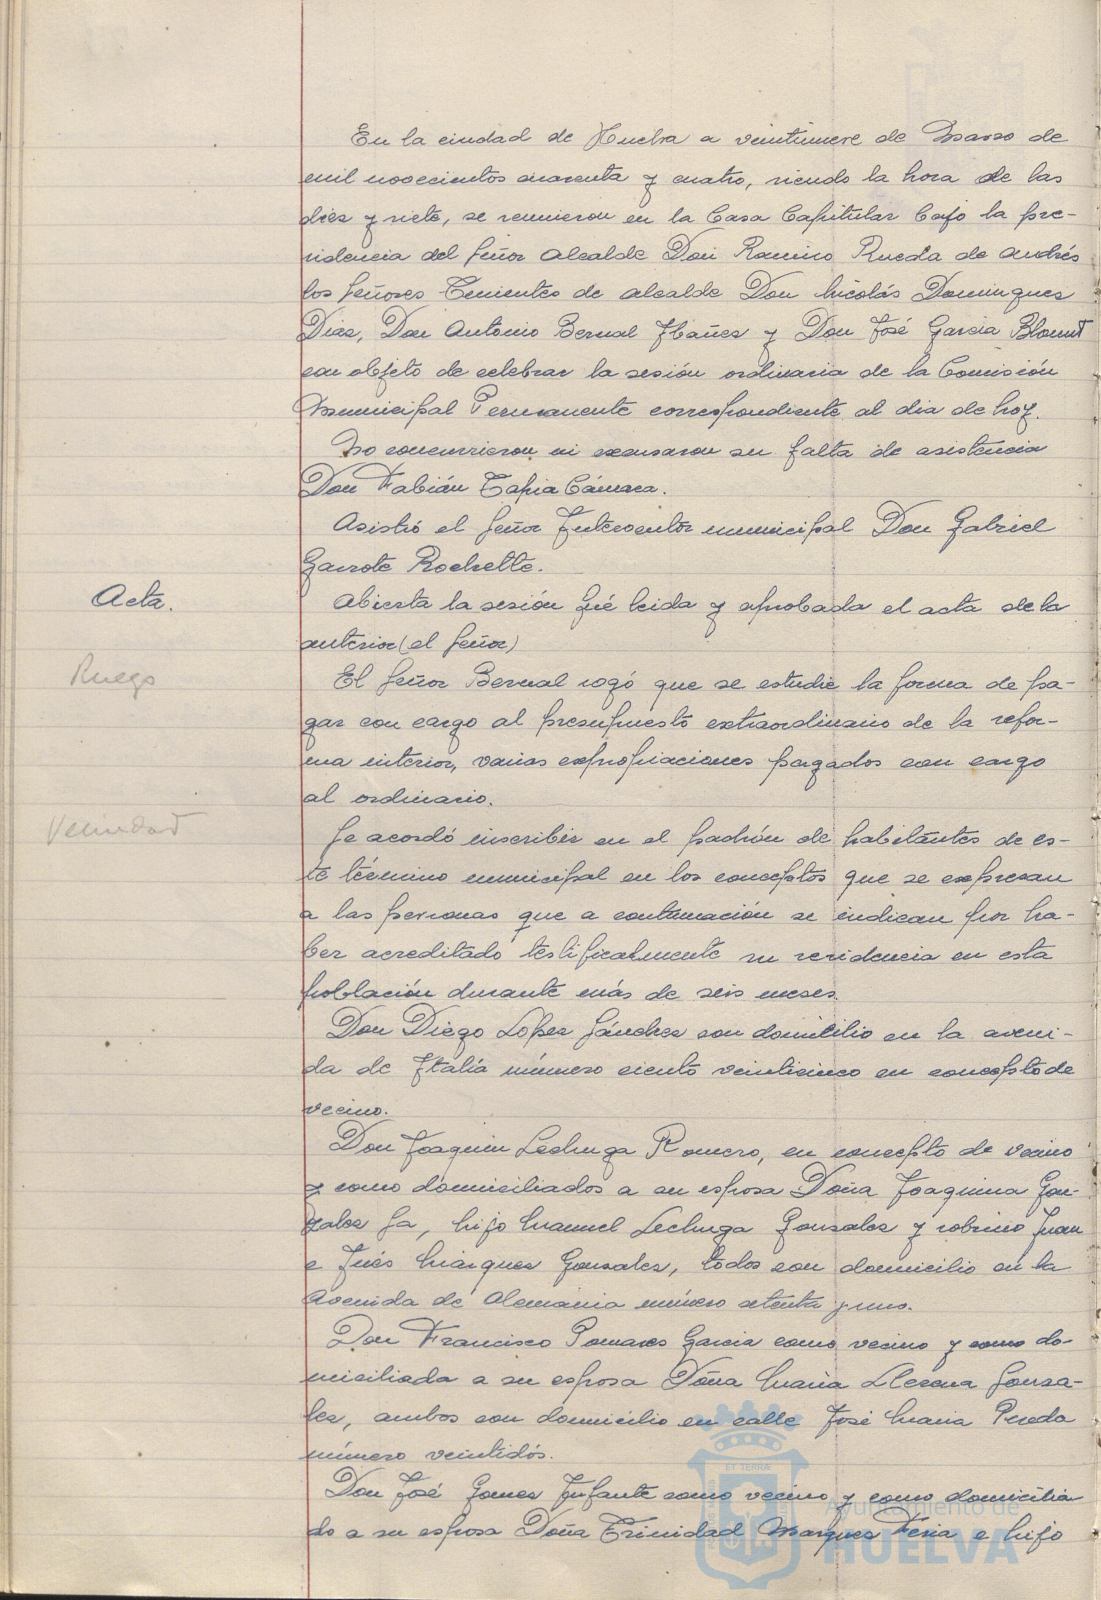 En la ciudad de Huelva a veintinueve de Marzo de
mil novecientos cuarenta y cuatro, siendo la hora de las
diez y siete, se reunieron en la Casa Capitular bajo la pre-
sidencia del Señor Alcalde Don Ramiro Rueda de Andrés
los Señores Tenientes de Alcalde Don Nicolás Domingues
Dias, Don Antonio Bernal Ibañes y Don José Garcia Blount
con objeto de celebrar la sesión ordinaria de la Comisión
Municipal Permanente correspondiente al dia de hoy.
No concurrieron ni excusaron su falta de asistencia
Don Fabián Tapia Cámara.
Asistió el Señor Interventor municipal Don Gabriel
Garrote Rochette.
Acta.
Abierta la sesión fué leida y aprobada el acta de la
anterior (el Señor)
Ruego
El Señor Bernal rogó que se estudie la forma de pa-
gar con cargo al presupuesto extraordinario de la refor-
ma interior, varias expropiaciones pagados con cargo
al ordinario.
Vecindad
Se acordó inscribir en el padrón de habitantes de es-
te término municipal en los conceptos que se expresan
a las personas que a continuación se indican por ha-
ber acreditado testificalmente su residencia en esta
población durante más de seis meses.
Don Diego Lopes Sánches con domicilio en la aveni-
da de Italia número ciento veinticinco en concepto de
vecino.
Don Joaquin Lechuga Romero, en concepto de vecino
y como domiciliados a su esposa Doña Joaquina Gon-
zales Sa, hijo Manuel Lechuga Gonsales y sobrino Juan
e Inés Marques Gonsales, todos con domicilio en la
Avenida de Alemania número setenta y uno.
Don Francisco Pomares Garcia como vecino y como do-
miciliada a su esposa Doña Maria Llerena Gonsa-
les, ambos con domicilio en calle José Maria Pereda
número veintidós.
Don José Gomes Infante como vecino y como domicilia
do a su esposa Doña Trinidad Marques Feria e hijo
ET TERRÆ
Ayuntamiento de
HUELVA